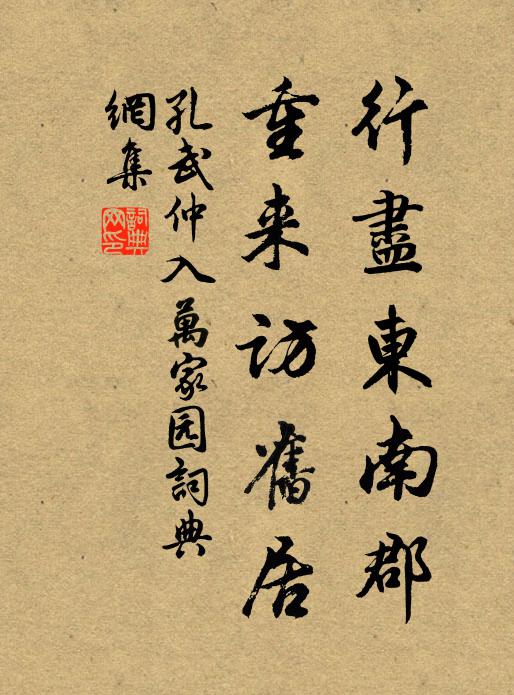 行盡東南郡
重来訪舊居
孔武仲入萬家园詞典
網集
詞典
网印